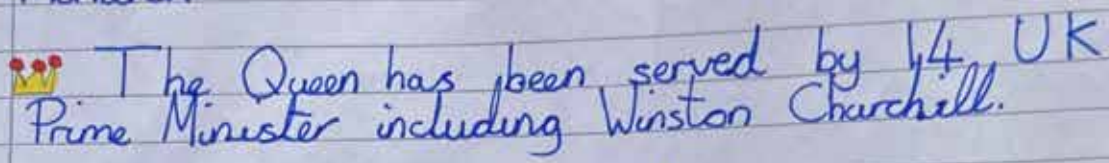 The Queen has been served by 14 UK
Prime Minister including Winston Churchill.